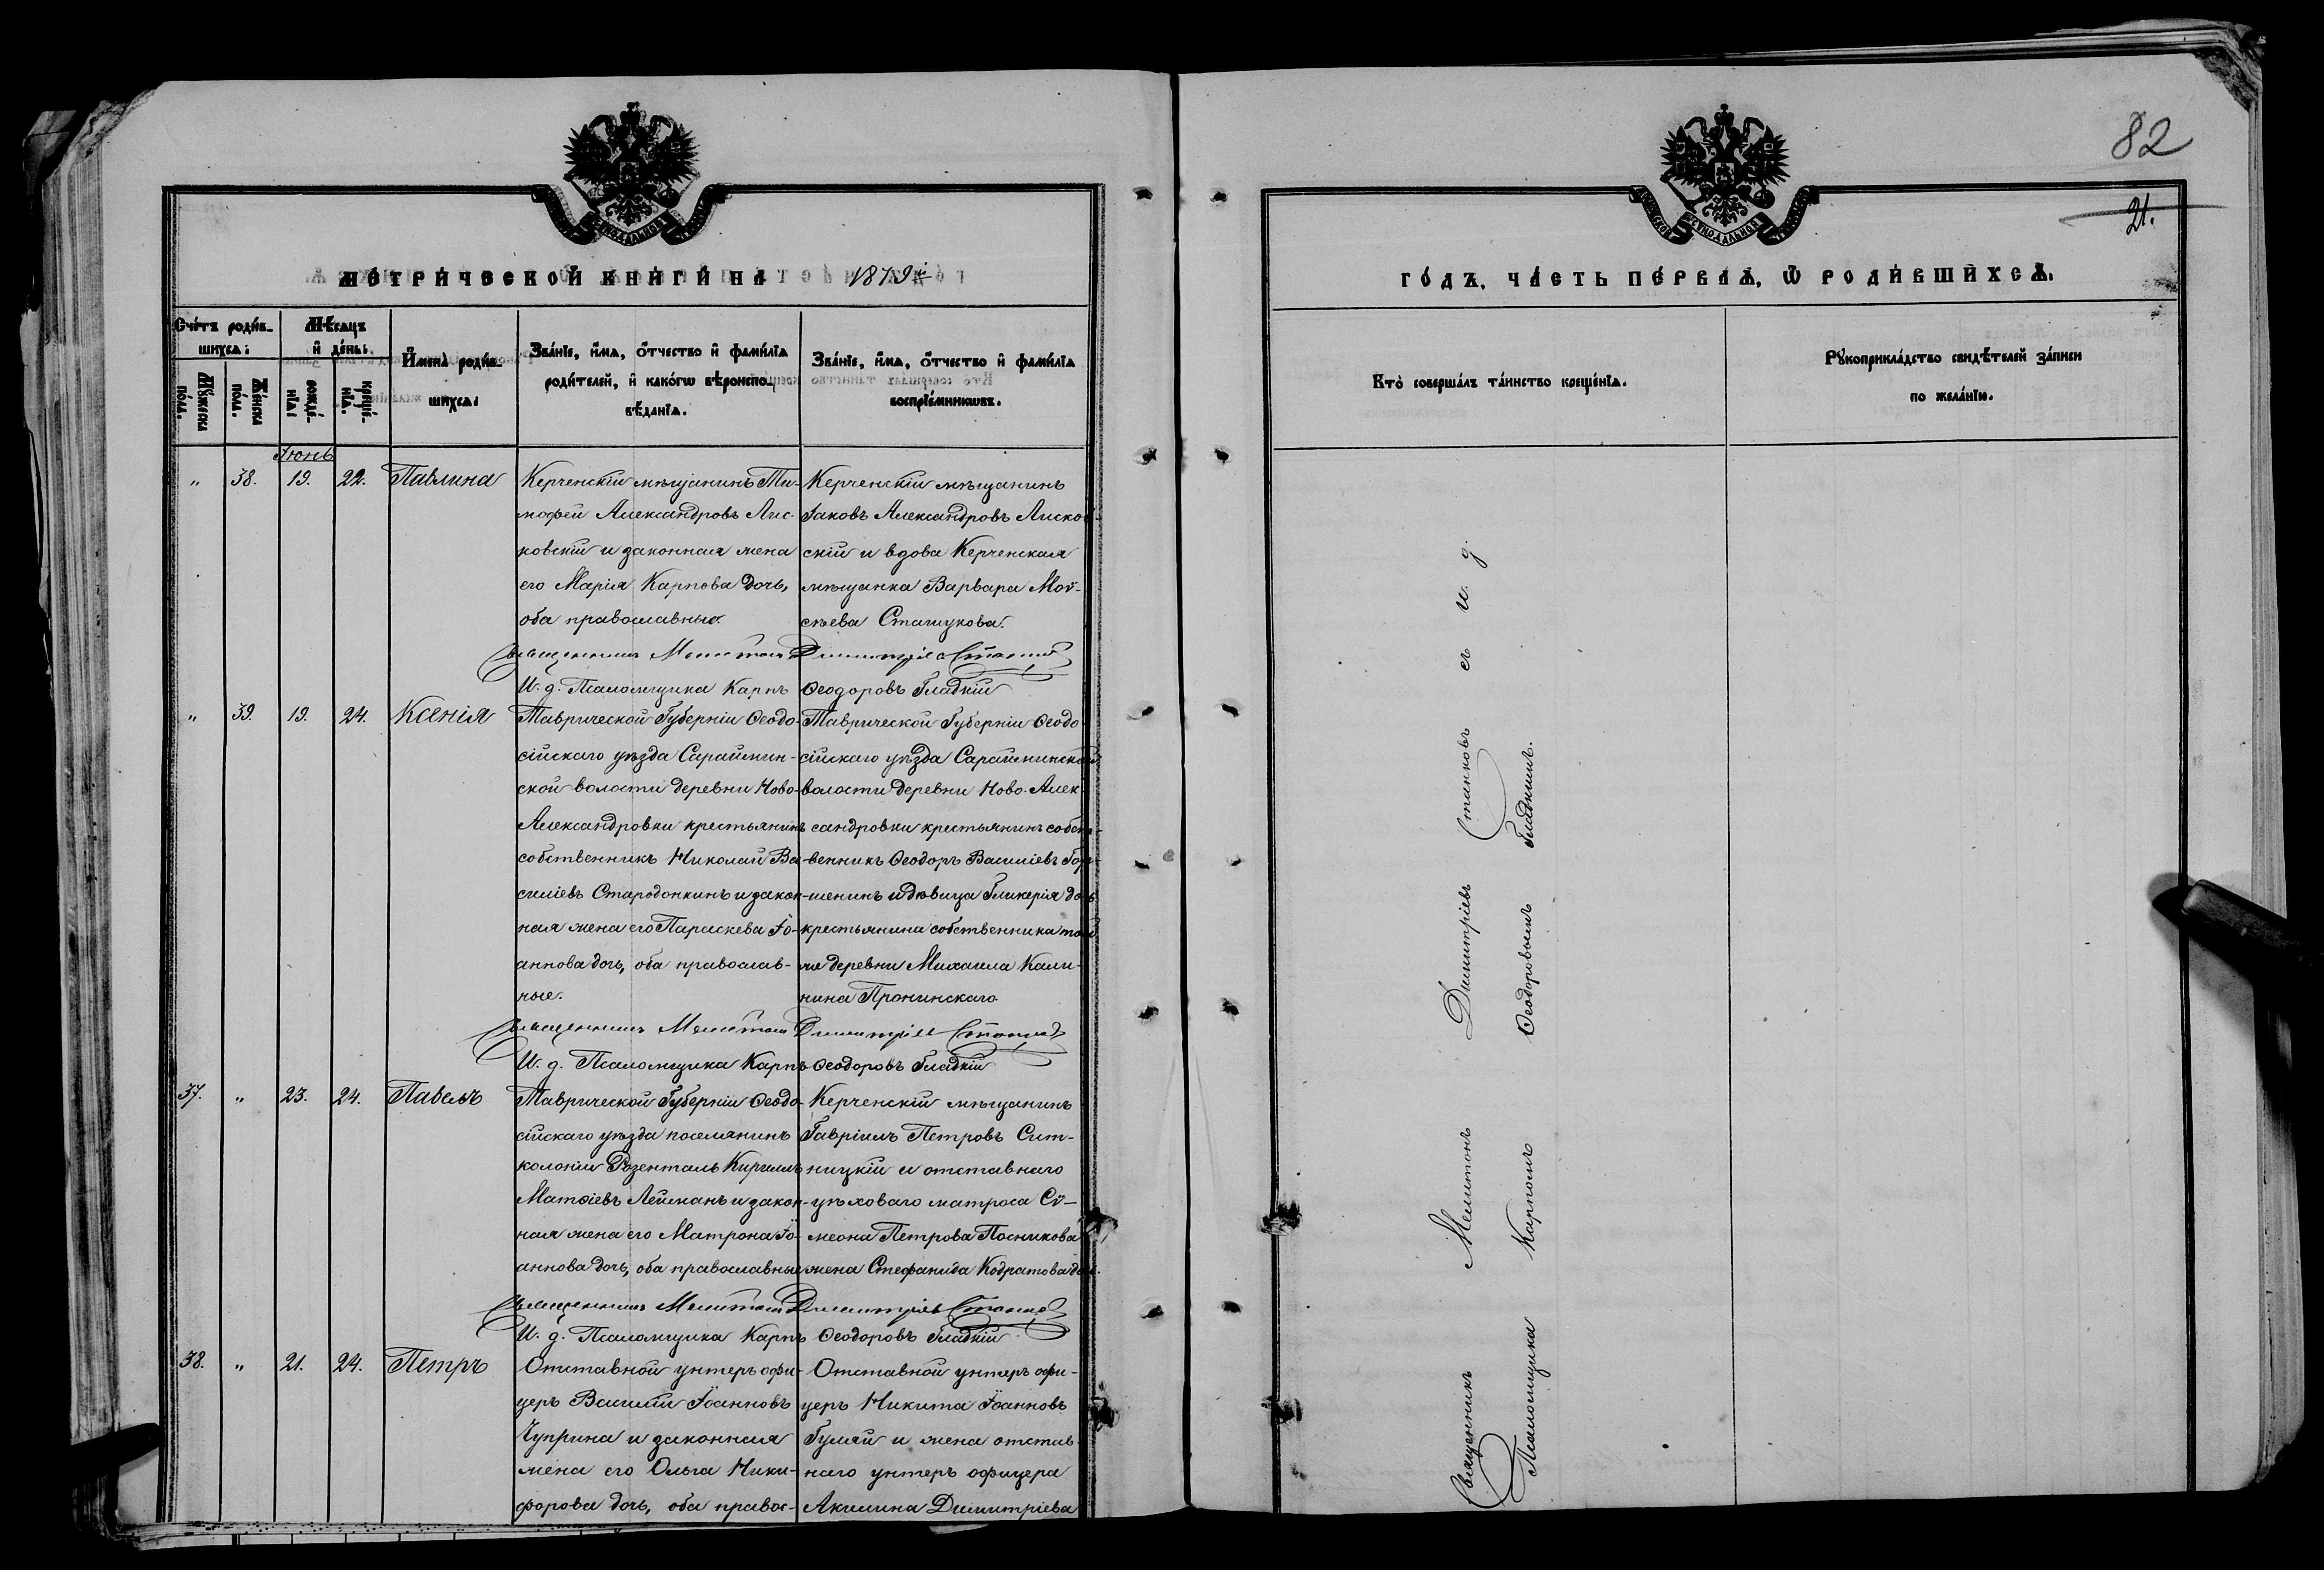 82
21.
МЕТРИЧЕСКОЙ КНИГИ НА 1879й
ГОДЪ, ЧАСТЬ ПЕРВАЯ, Ѿ РОДИВШИХСЯ.
Счётъ родив-
шихся:
Мѣсяцъ
и день:
Мужеска
пола.
Женска
пола.
рожде-
нія:
креще-
нія.
Имена родив-
шихся:
Званіе, имя, отчество и фамилія
родителей, и какогѡ вѣроиспо-
вѣданія.
Званіе, имя, отчество и фамилія
воспріемникѡвъ.
Кто совершалъ таинство крещенія.
Рукоприкладство свидѣтелей записи
по желанію.
Іюнь
" 38. 19. 22. Павлина
Керченскій мѣщанинъ Ти-
мофей Александровъ Лис-
ковскій и законная жена
его Марія Карпова дочь,
оба православные.
Керченскій мѣщанинъ
Іаковъ Александровъ Лисков-
скій и вдова Керченская
мѣщанка Варвара Мой-
сѣева Сташукова.
Священникъ Мелитонъ Димитріевъ Станковъ
И. д. Псаломщика Карпъ Ѳеодоровъ Гладкій
" 39. 19. 24. Ксенія
Таврической Губерніи Ѳеодо-
сійскаго уѣзда Сараймин-
ской волости деревни Ново-
Александровки крестьянинъ
собственникъ Николай Ва-
силіевъ Стародонкинъ и закон-
ная жена его Параскева Іо-
аннова дочь, оба православ-
ные.
Таврической Губерніи Ѳеодо-
сійскаго уѣзда Сарайминской
волости деревни Ново-Алек-
сандровки крестьянинъ собст-
венникъ Ѳеодоръ Василіевъ
шенинъ и дѣвица Гликерія дочь
крестьянина собственника той
же деревни Михаила Кали-
нина Пронинскаго
Священникъ Мелитонъ Димитріевъ Станковъ
И. д. Псаломщика Карпъ Ѳеодоровъ Гладкій
37. " 23. 24. Павелъ
Таврической Губерніи Ѳеодо-
сійскаго уѣзда поселянинъ
колоніи Розенталь Кириллъ
Матѳіевъ Лейманъ и закон-
ная жена его Матрона Іо-
аннова дочь, оба православные
Керченскій мѣщанинъ
Гавріилъ Петровъ Сит-
ницкій и отставнаго
цѣховаго матроса Си-
меона Петрова Посникова
жена Стефанида Кодратова дочь.
Священникъ Мелитонъ Димитріевъ Станковъ
И. д. Псаломщика Карпъ Ѳеодоровъ Гладкій
38. " 21. 24. Петръ
Отставной унтеръ офи-
церъ Василій Іоанновъ
Чуприна и законная
жена его Ольга Ники-
форова дочь, оба правос-
Отставной унтеръ офи-
церъ Никита Іоанновъ
Гуляй и жена отстав-
наго унтеръ офицера
Акилина Димитріева
Священникъ Мелитонъ Димитріевъ Станковъ съ и. д.
Псаломщика Карпомъ Ѳеодоровымъ Гладкимъ.